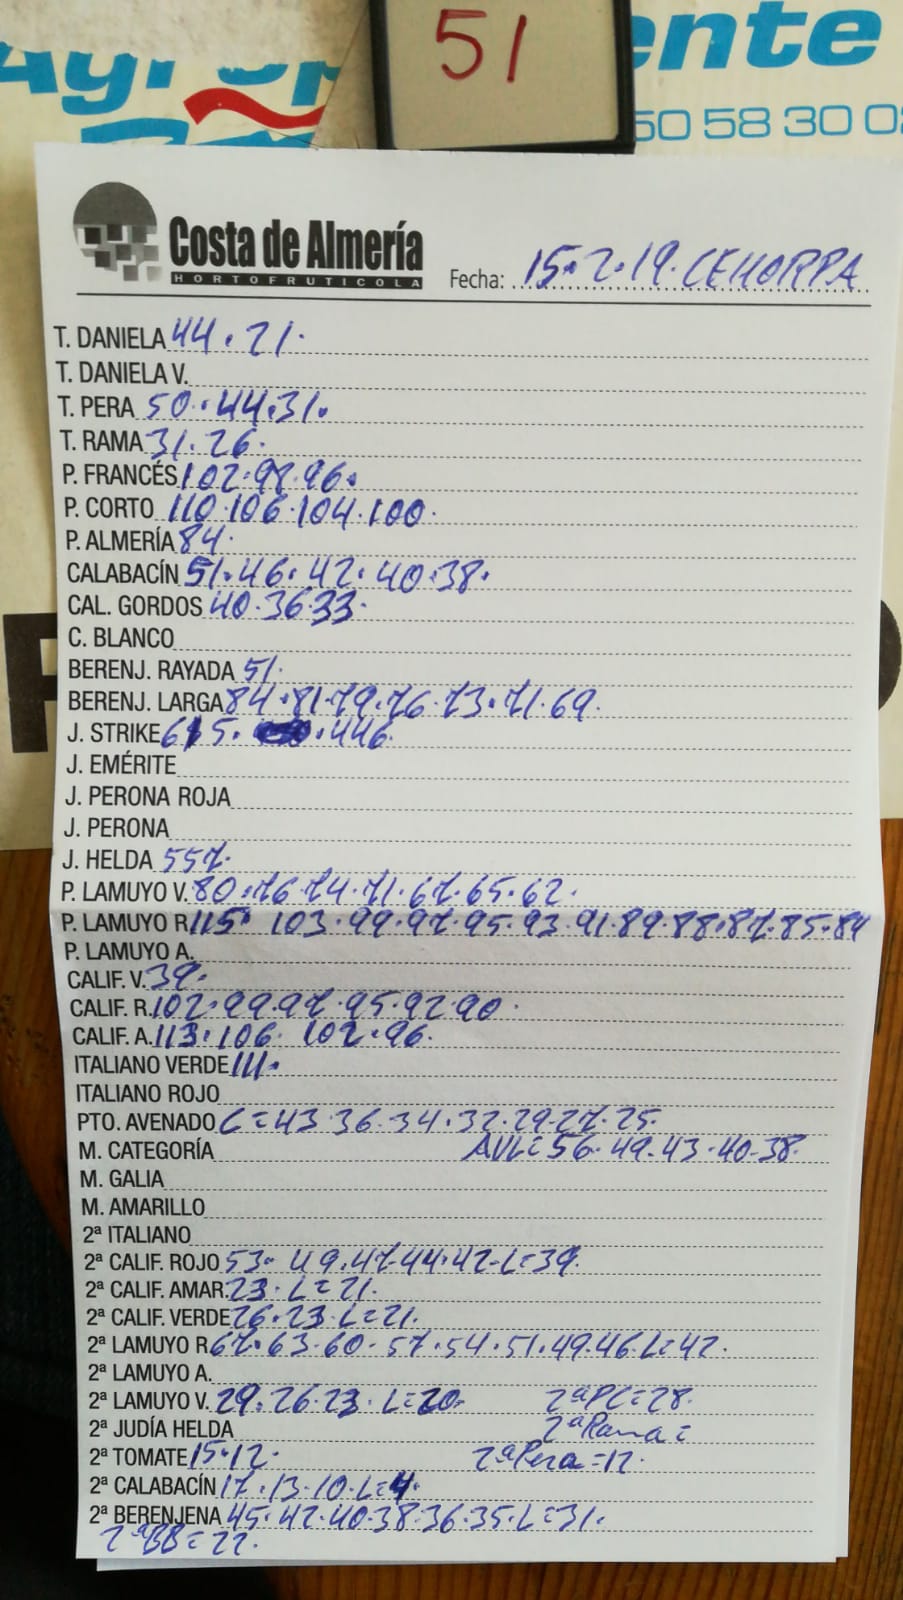 51
ente
50 58 30 0
Costa de Almería
HORTOFRUTICOLA
Fecha: 15.2.19. CEHORPA
T. DANIELA 44.21.
T. DANIELA V.
T. PERA 50.44.31.
T. RAMA 31.26.
P. FRANCÉS 102.98.96.
P. CORTO 110.106.104.100.
P. ALMERÍA 84.
CALABACÍN 51.46.42.40.38.
CAL. GORDOS 40.36.33.
C. BLANCO
BERENJ. RAYADA 51.
BERENJ. LARGA 84.81.79.76.73.71.69.
J. STRIKE 615. .446.
J. EMÉRITE
J. PERONA ROJA
J. PERONA
J. HELDA 557.
P. LAMUYO V. 80.76.74.71.67.65.62.
P. LAMUYO R 115. 103.99.97.95.93.91.89.88.87.85.84
P. LAMUYO A.
CALIF. V. 39.
CALIF. R. 102.99.97.95.92.90.
CALIF. A. 113.106. 102.96.
ITALIANO VERDE 111.
ITALIANO ROJO
PTO. AVENADO C=43.36.34.32.29.27.25.
M. CATEGORÍA AVL=56.49.43.40.38.
M. GALIA
M. AMARILLO
2ª ITALIANO
2ª CALIF. ROJO 53.49.47.44.42.L=39.
2ª CALIF. AMAR. 23.L=21.
2ª CALIF. VERDE 26.23.L=21.
2ª LAMUYO R 67.63.60.57.54.51.49.46.L=42.
2ª LAMUYO A.
2ª LAMUYO V. 29.26.23.L=20. 2ªPC=28.
2ª JUDÍA HELDA 2ªRama=
2ª TOMATE 15.12. 2ªPera=12.
2ª CALABACÍN 17.13.10.L=4.
2ª BERENJENA 45.42.40.38.36.35.L=31.
2ªBB=22.